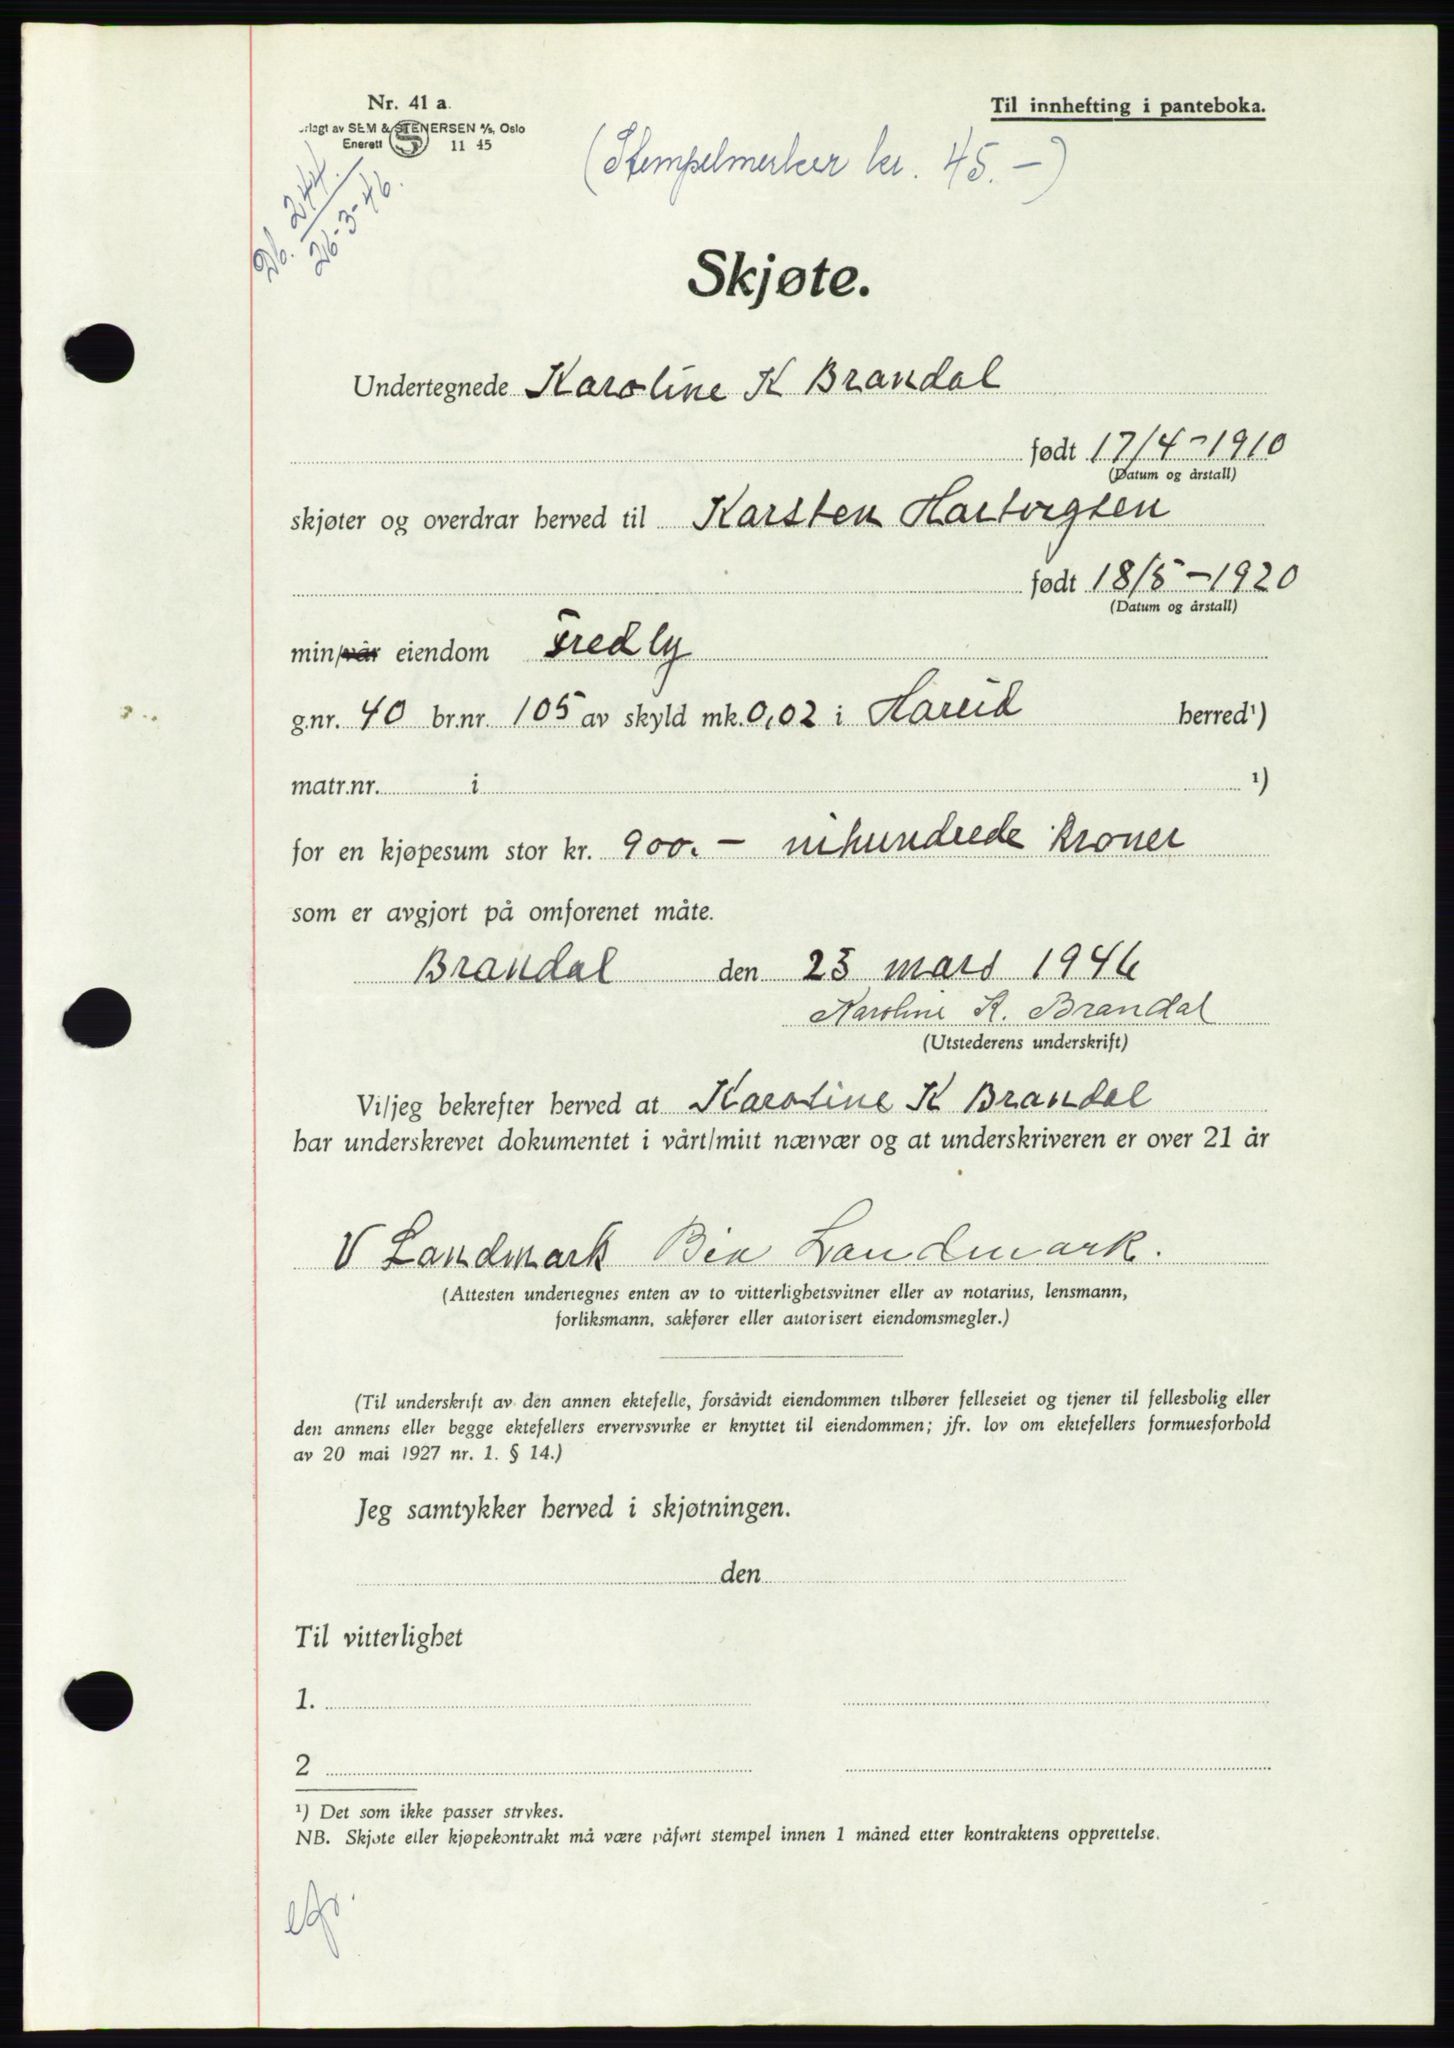 Nr. 41 a.
Til innhefting i panteboka.
rlagt av SEM & STENERSEN A/S, Oslo
Enerett 11 45
(Stempelmerker kr. 45.-)
Db. 244.
26-3-46.
Skjøte.
Undertegnede Karoline K Brandal
født 17/4-1910
(Datum og årstall)
skjøter og overdrar herved til Karsten
født 18/5-1920
(Datum og årstall)
min/vår eiendom Fredly
g.nr. 40 br.nr. 105 av skyld mk. 0,02 i Hareid herred¹)
matr.nr. i ¹)
for en kjøpesum stor kr. 900.- nihundrede kroner
som er avgjort på omforenet måte.
Brandal den 25 mars 1946
Karoline K. Brandal
(Utstederens underskrift)
Vi/jeg bekrefter herved at Karoline K Brandal
har underskrevet dokumentet i vårt/mitt nærvær og at underskriveren er over 21 år
V Landmark Landmark.
(Attesten undertegnes enten av to vitterlighetsvitner eller av notarius, lensmann,
forliksmann, sakfører eller autorisert eiendomsmegler.)
(Til underskrift av den annen ektefelle, forsåvidt eiendommen tilhører felleseiet og tjener til fellesbolig eller
den annens eller begge ektefellers ervervsvirke er knyttet til eiendommen; jfr. lov om ektefellers formuesforhold
av 20 mai 1927 nr. 1. § 14.)
Jeg samtykker herved i skjøtningen.
den
Til vitterlighet
1.
2
¹) Det som ikke passer strykes.
NB. Skjøte eller kjøpekontrakt må være påført stempel innen 1 måned etter kontraktens opprettelse.